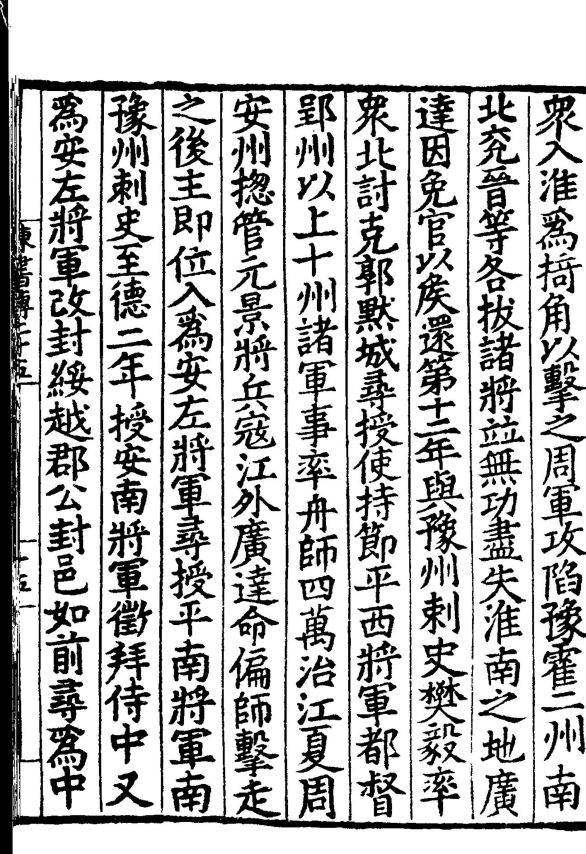 衆入淮爲掎角以擊之周軍攻陷豫霍二州南
北兖晉等各拔諸將並無功盡失淮南之地廣
達因免官以矦還第十二年與豫州刺史樊毅率
衆北討克郭默城尋授使持節平西將軍都督
郢州以上十州諸軍事率舟師四萬治江夏周
安州揔管元景將兵寇江外廣達命偏師擊走
之後主即位入爲安左將軍尋授平南將軍南
豫州刺史至德二年授安南將軍徵拜侍中又
爲安左將軍改封綏越郡公封邑如前尋爲中